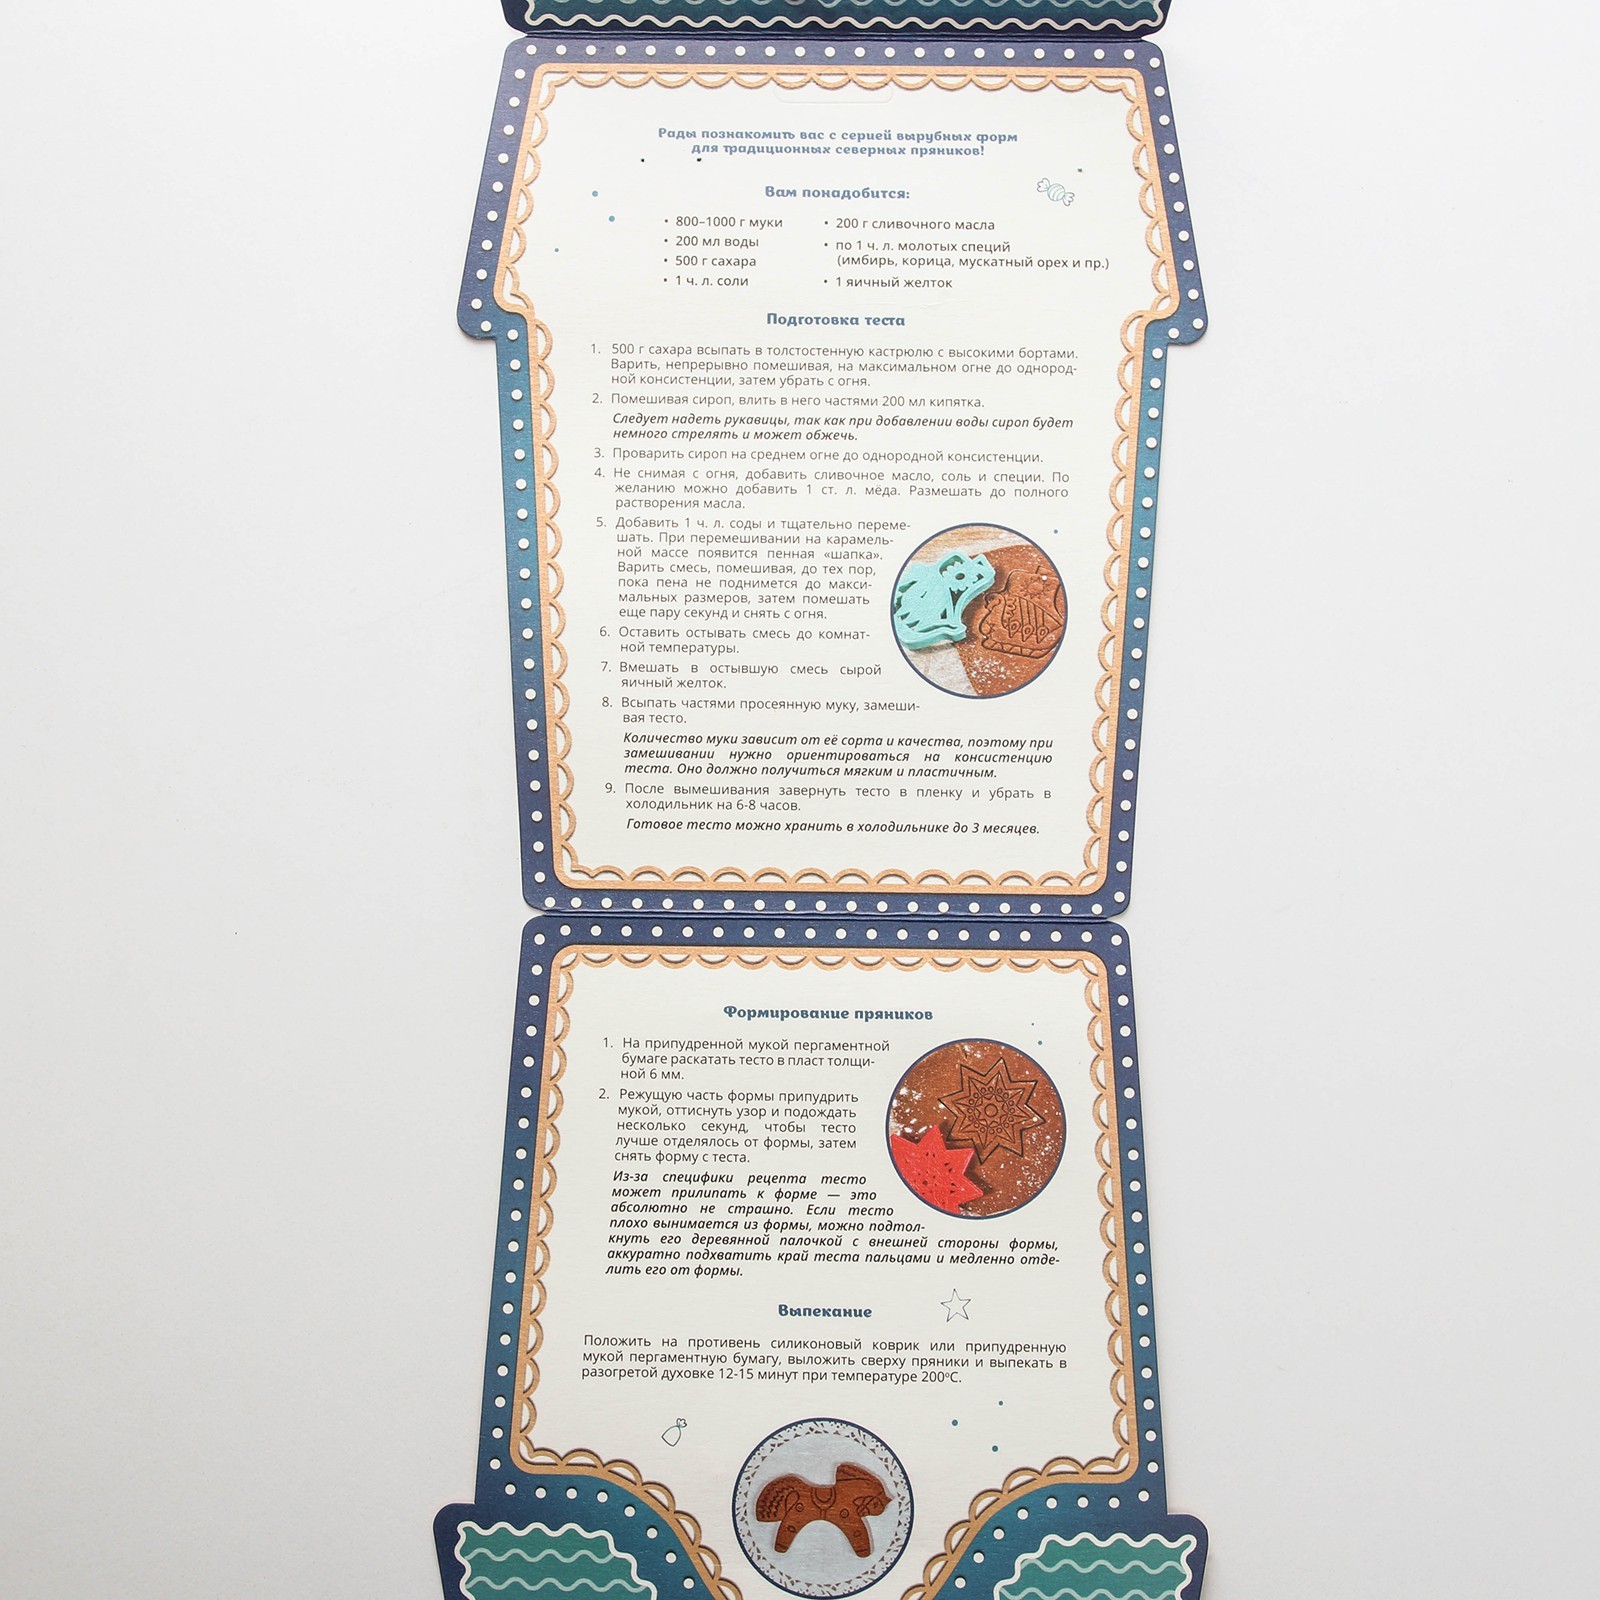 Рады познакомить вас с серией вырубных форм
для традиционных северных пряников!
Вам понадобится:
• 800–1000 г муки
• 200 мл воды
• 500 г сахара
• 1 ч. л. соли
• 200 г сливочного масла
• по 1 ч. л. молотых специй
(имбирь, корица, мускатный орех и пр.)
• 1 яичный желток
Подготовка теста
1. 500 г сахара всыпать в толстостенную кастрюлю с высокими бортами.
Варить, непрерывно помешивая, на максимальном огне до однород-
ной консистенции, затем убрать с огня.
2. Помешивая сироп, влить в него частями 200 мл кипятка.
Следует надеть рукавицы, так как при добавлении воды сироп будет
немного стрелять и может обжечь.
3. Проварить сироп на среднем огне до однородной консистенции.
4. Не снимая с огня, добавить сливочное масло, соль и специи. По
желанию можно добавить 1 ст. л. мёда. Размешать до полного
растворения масла.
5. Добавить 1 ч. л. соды и тщательно переме-
шать. При перемешивании на карамель-
ной массе появится пенная «шапка».
Варить смесь, помешивая, до тех пор,
пока пена не поднимется до макси-
мальных размеров, затем помешать
еще пару секунд и снять с огня.
6. Оставить остывать смесь до комнат-
ной температуры.
7. Вмешать в остывшую смесь сырой
яичный желток.
8. Всыпать частями просеянную муку, замеши-
вая тесто.
Количество муки зависит от её сорта и качества, поэтому при
замешивании нужно ориентироваться на консистенцию
теста. Оно должно получиться мягким и пластичным.
9. После вымешивания завернуть тесто в пленку и убрать в
холодильник на 6-8 часов.
Готовое тесто можно хранить в холодильнике до 3 месяцев.
Формирование пряников
1. На припудренной мукой пергаментной
бумаге раскатать тесто в пласт толщи-
ной 6 мм.
2. Режущую часть формы припудрить
мукой, оттиснуть узор и подождать
несколько секунд, чтобы тесто
лучше отделялось от формы, затем
снять форму с теста.
Из-за специфики рецепта тесто
может прилипать к форме — это
абсолютно не страшно. Если тесто
плохо вынимается из формы, можно подтол-
кнуть его деревянной палочкой с внешней стороны формы,
аккуратно подхватить край теста пальцами и медленно отде-
лить его от формы.
Выпекание
Положить на противень силиконовый коврик или припудренную
мукой пергаментную бумагу, выложить сверху пряники и выпекать в
разогретой духовке 12-15 минут при температуре 200°С.